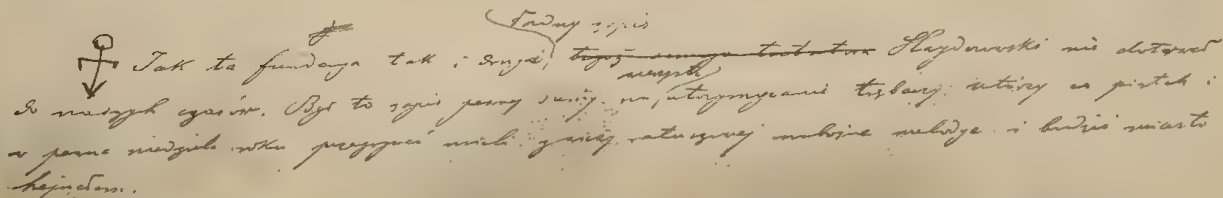 ładny zapis
Jak ta fundacja tak i druga, tegoż samego Haydowski nie dotrwał
do naszych czasów. Był to zapis pewny sumy na utrzymywanie trębaczy którzy co piątek i
w pewne niedziele roku przegrywać mieli z wieży ratuszowej nabożne melodye i budzić miasto
hejnałem.